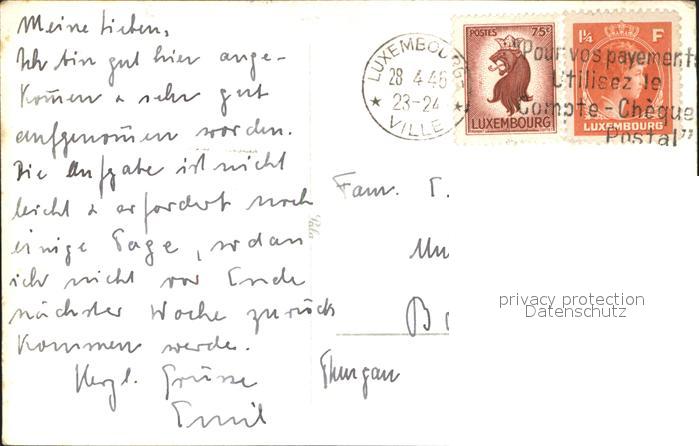 Meine Lieben,
Ich bin gut hier ange-
kom̅en & sehr gut
aufgenom̅en worden.
Die Aufgabe ist nicht
leicht & erfordert noch
einige Tage, sodass
ich nicht vor Ende
nächster Woche zurück
kommen werde.
Herzl. Grüsse
Emil
LUXEMBOURG
28 4.46
23-24
VILLE
POSTES 75c
LUXEMBOURG
1¼ F
LUXEMBOURG
"Pour vos payements
Utilisez le
Compte-Chèque
Postal"
Fam. T.
Mu
B
Thurgau
privacy protection
Datenschutz